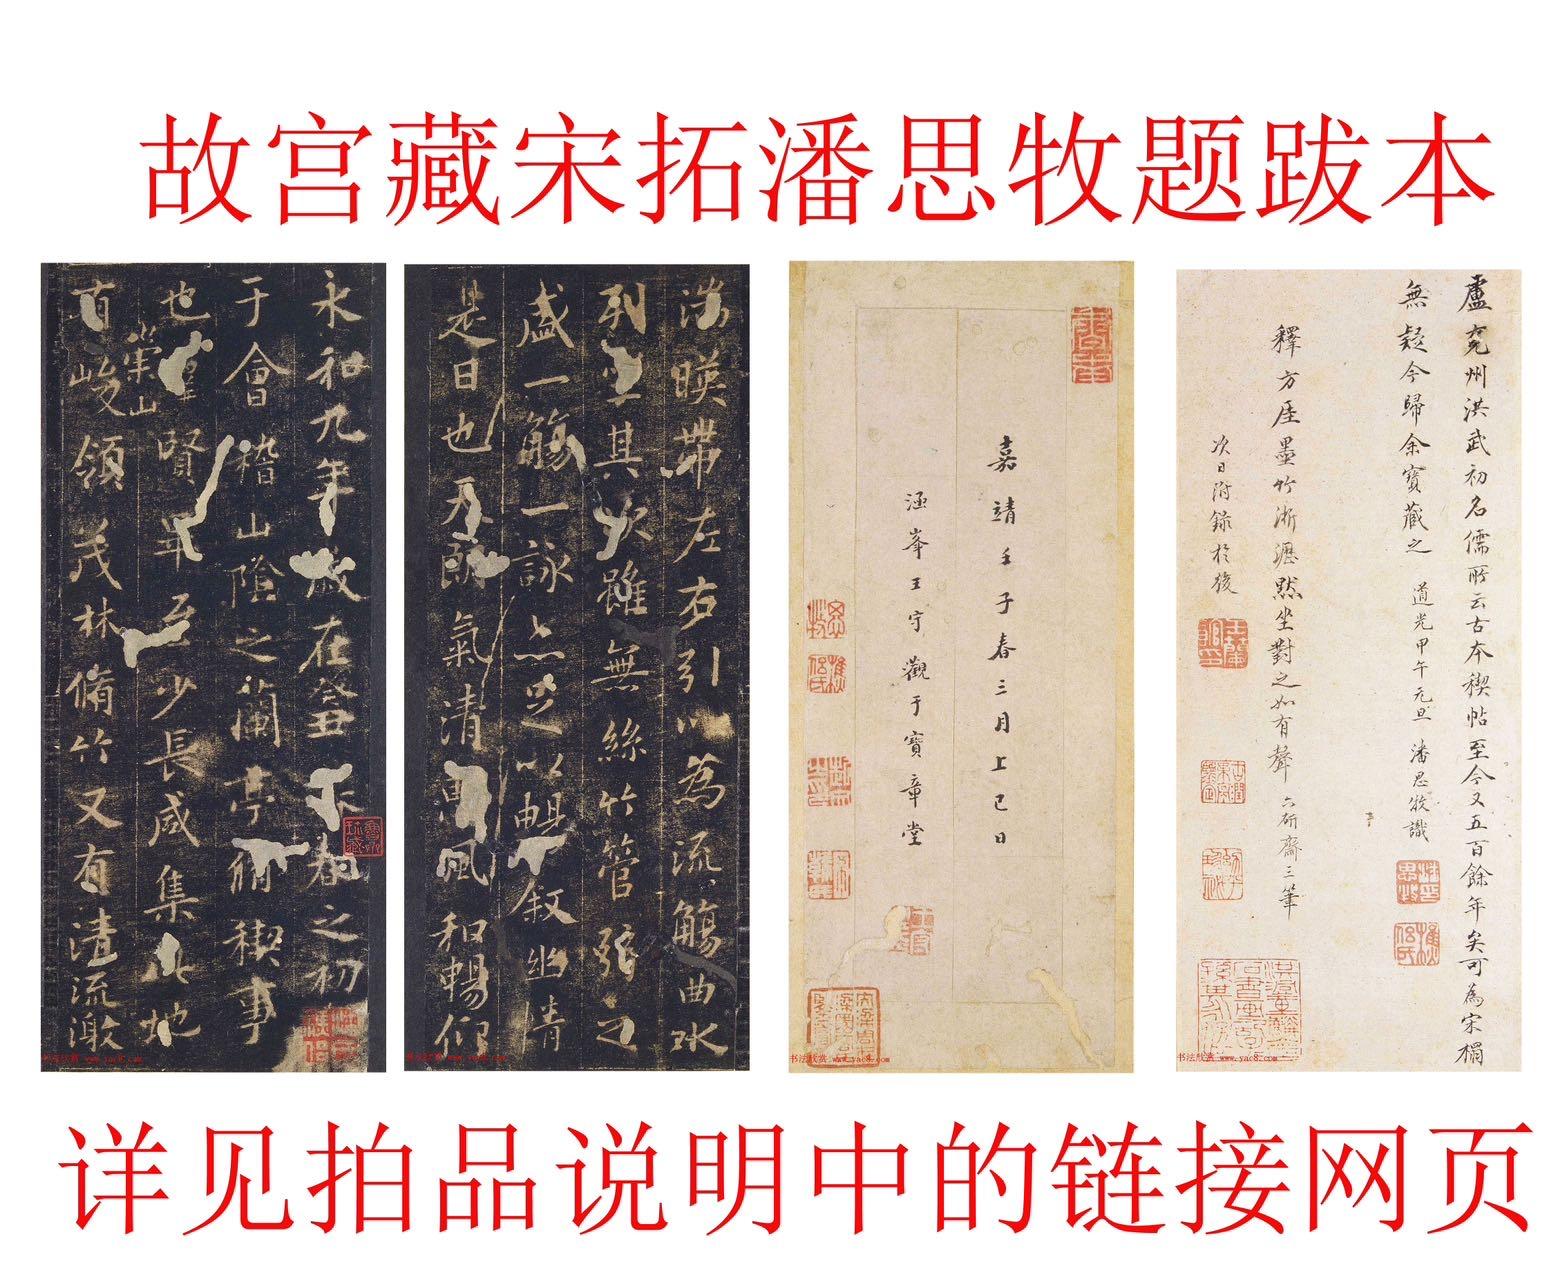 故宫藏宋拓潘思牧题跋本
永和九年歲在癸丑暮春之初
于會稽山陰之蘭亭脩禊事
也羣賢畢至少長咸集此地
有峻領茂林脩竹又有清流激
崇山
湍暎帶左右引以為流觴曲水
列坐其次雖無絲竹管弦之
盛一觴一詠亦足以暢叙幽情
是日也天朗氣清惠風和暢仰
嘉靖壬子春三月上巳日
涵峯王守觀于寶章堂
盧兗州洪武初名儒所云古本稧帖至今又五百餘年矣可為宋榻
無疑今歸余寶藏之 道光甲午元旦 潘思牧識
釋方厓墨竹淅瀝然坐對之如有聲 六研齋三筆
次日附錄於後
书法欣赏 www.yac8.com
书法欣赏 www.yac8.com
书法欣赏 www.yac8.com
书法欣赏 www.yac8.com
详见拍品说明中的链接网页